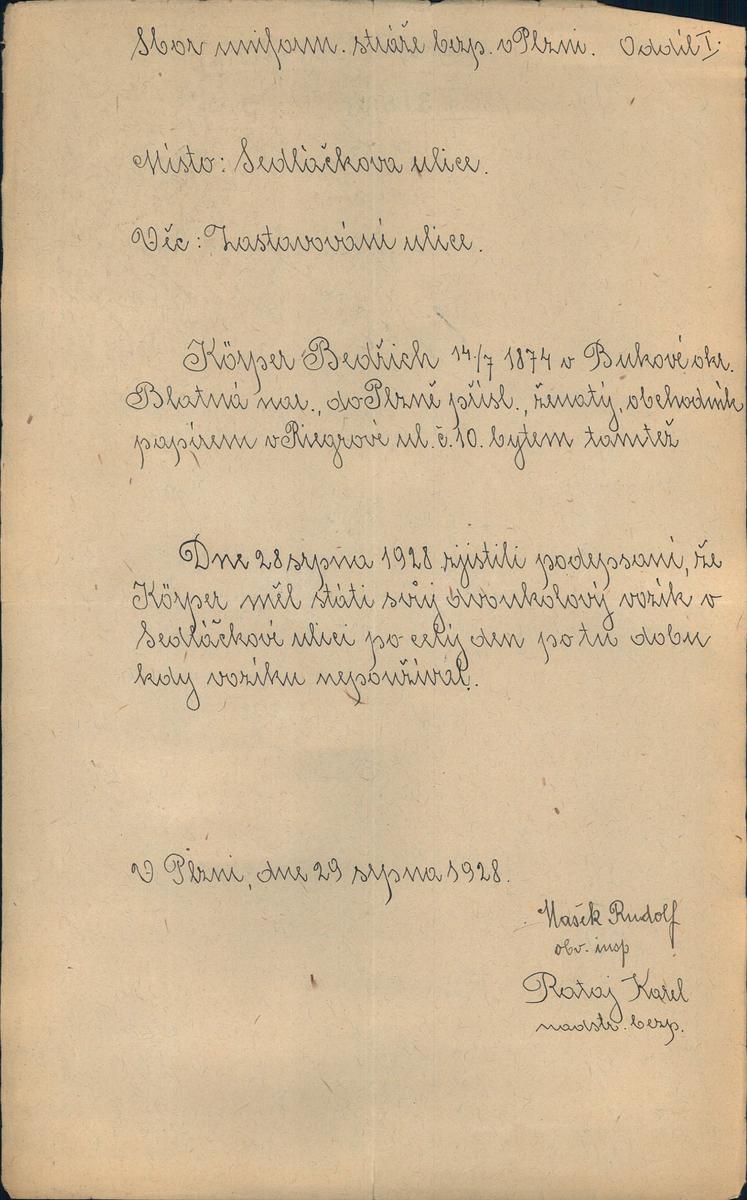 Sbor uniform. stráže bezp. v Plzni. Oddíl I.
Místo: Sedláčkova ulice.
Věc: Zastavování ulice.
Körper Bedřich 14./7 1874 v Bukové okr.
Blatná nar., do Plzně přísl., ženatý, obchodník
papírem v Riegrově ul. č. 10. bytem tamtéž
Dne 28 srpna 1928 zjistili podepsaní, že
Körper měl státi svůj dvoukolový vozík v
Sedláčkově ulici po celý den po tu dobu
kdy vozíku nepoužíval.
V Plzni, dne 29 srpna 1928.
Mašek Rudolf
obv. insp
Rataj Karel
nadstr. bezp.